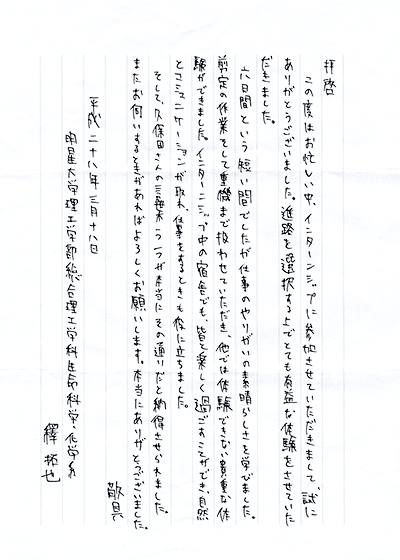 拝啓
この度はお忙しい中、インターンシップに参加させていただきまして、誠に
ありがとうございました。進路を選択する上でとても有益な体験をさせていた
だきました。
六日間という短い間でしたが仕事のやりがいの素晴らしさを学びました。
剪定の作業そして重機まで扱わせていただき、他では体験できない貴重な体
験ができました。インターンシップ中の宿舎でも、皆と楽しく過ごすことができ、自然
とコミュニケーションが取れ、仕事をするときも役に立ちました。
そして、久保田さんの三箇条 一つ一つが本当にその通りだと納得させられました。
またお伺いするときがあればよろしくお願いします。本当にありがとうございました。
敬具
平成二十八年三月十八日
明星大学理工学部総合理工学科生命科学・化学系
釋 拓也